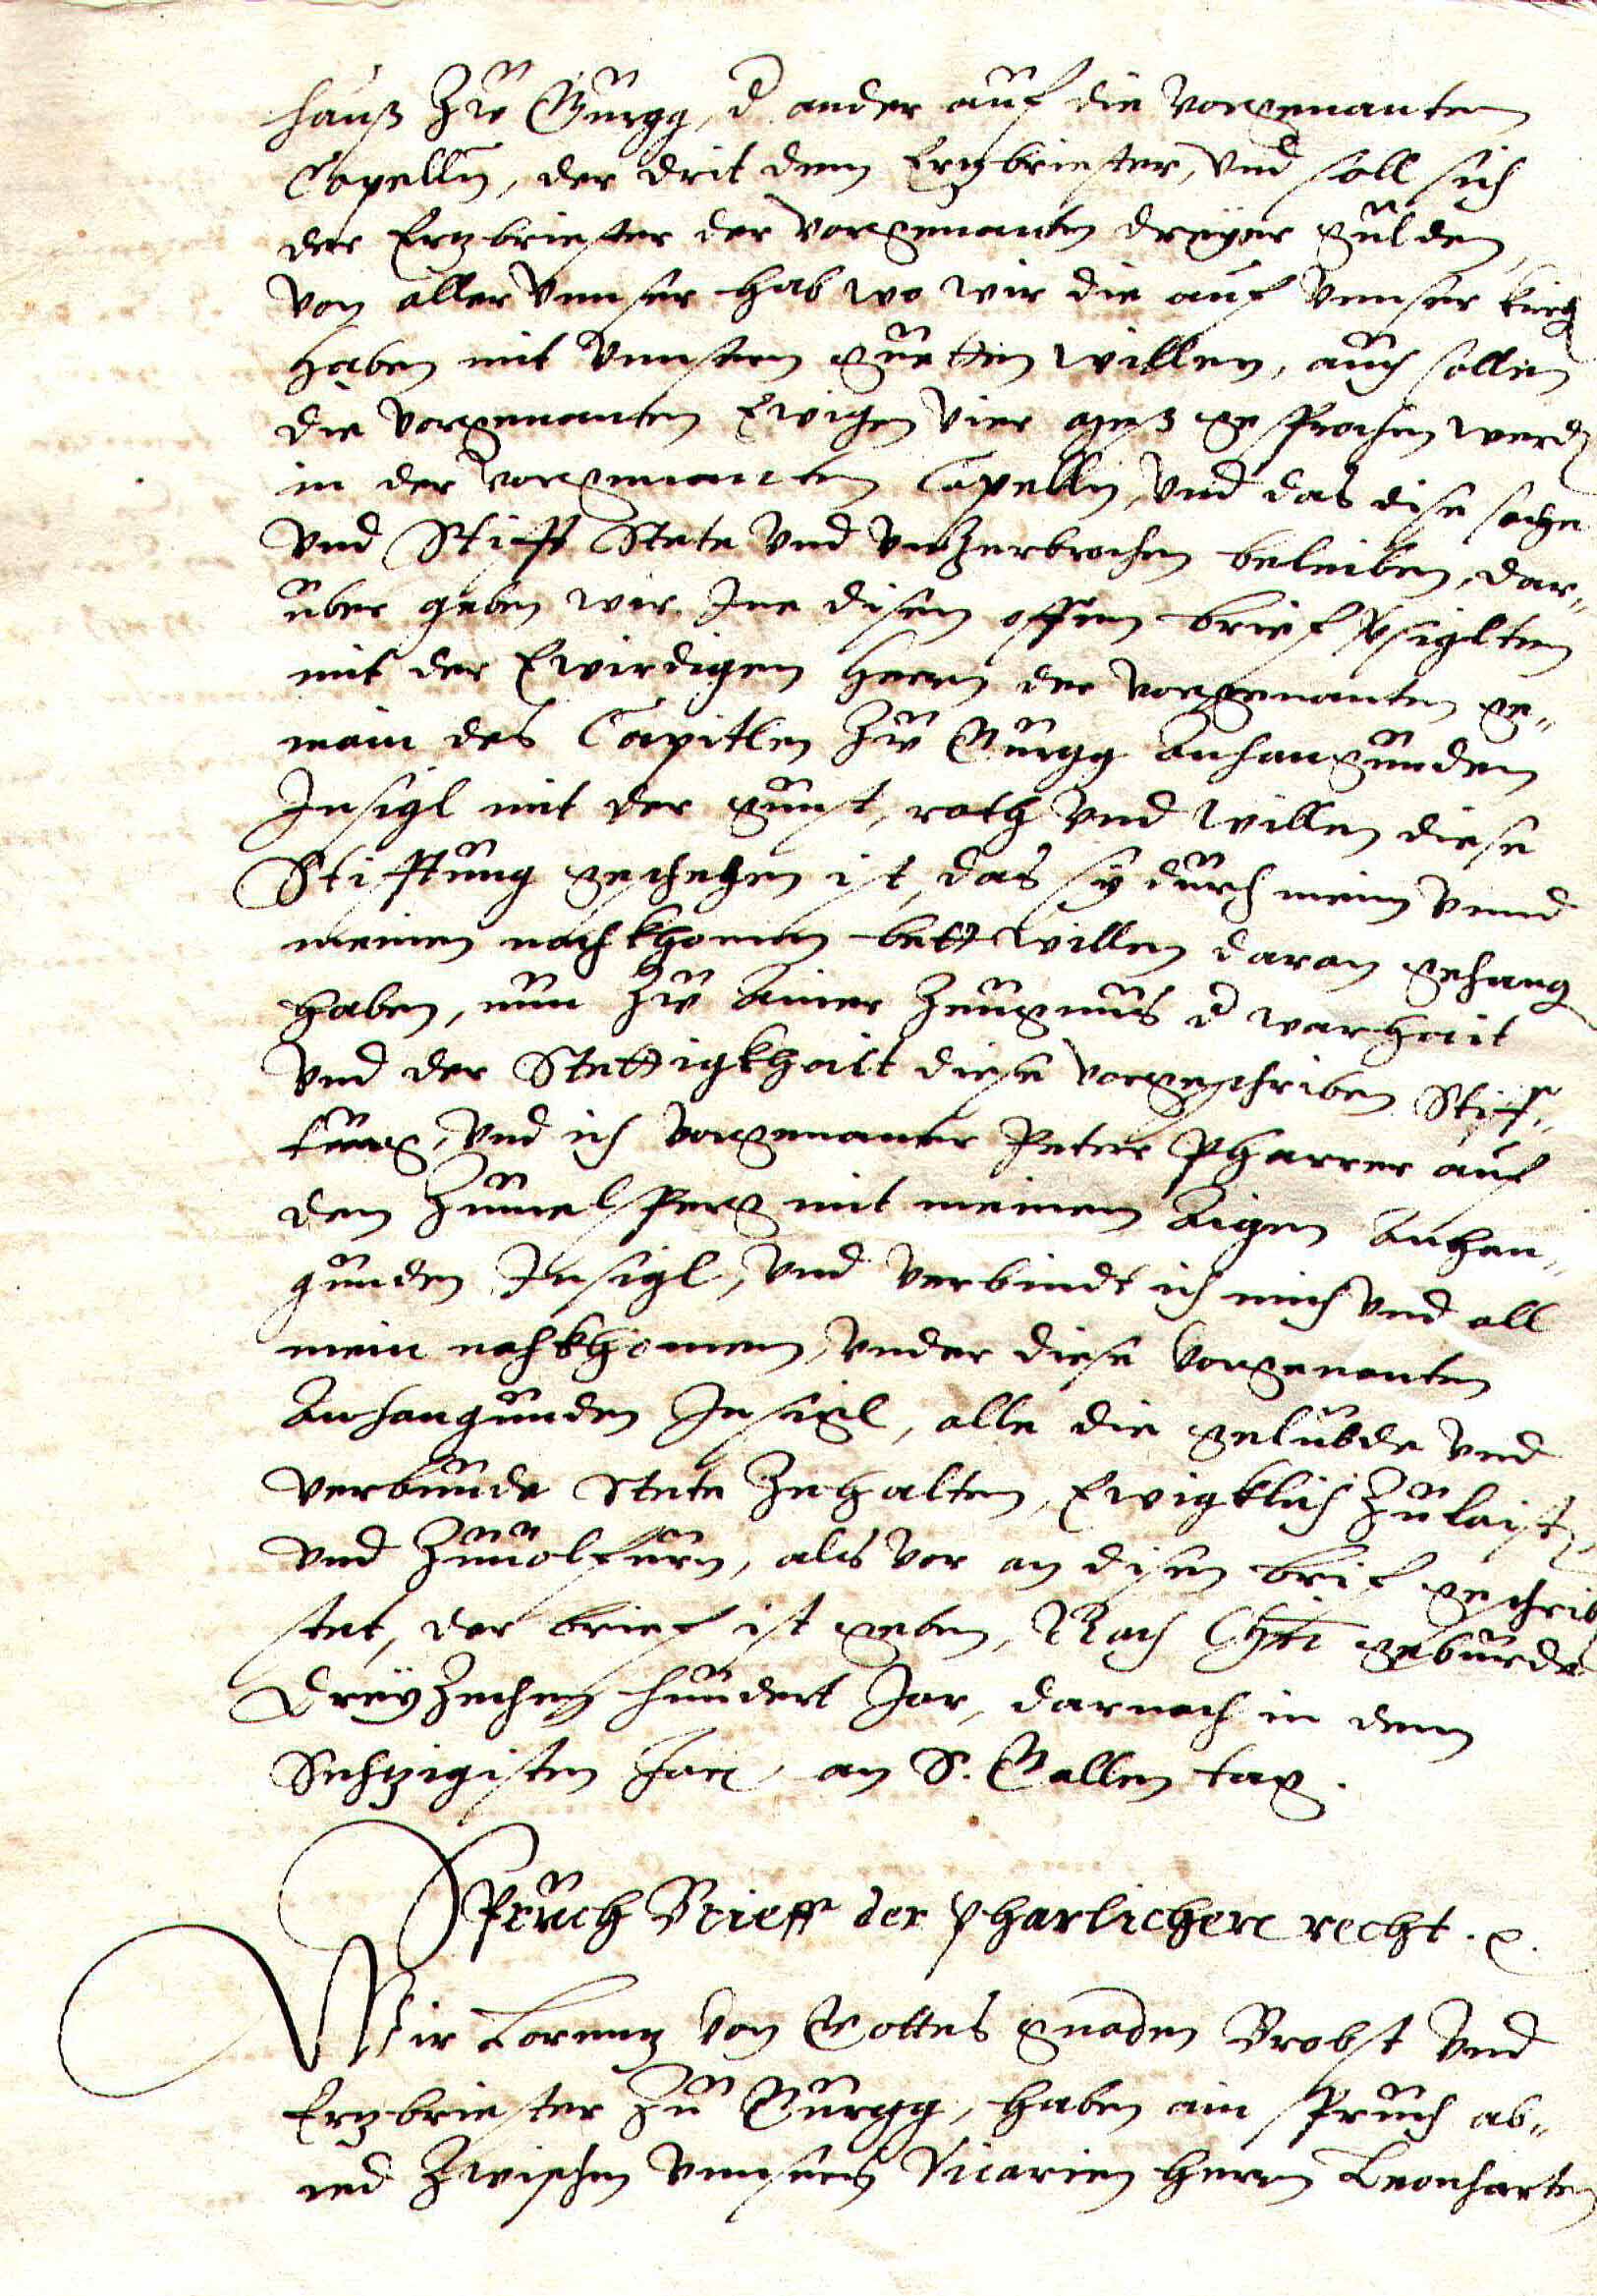 hauß zw Gurgg, d ander auf die vorgenanten
Capelln, der drit dem Ertzbriester, vnd soll sich
der Ertzbriester der vorgenanten dreyer gulden,
von aller vnnser hab wo wir die auf vnnser kirch
haben mit vnnsern guetten willen, auch sollen
die vorgenanten Ewigen vier mess gesprochen werd
in der vorgenanten Capelln, vnd das dise sache
vnd Stifft Stete vnd vnzerbrochen beleiben, dar„
über geben wir Ine disen offen brief vsiglten
mit der Ewirdigen herrn der vorgenanten ge„
main des Capitlen zw Gurgg anhangunden
Insigl mit der gunst, rath vnd willen diese
Stifftung geschehen ist, das sy durch mein vnnd
meinen nachkhomen bett willen daran gehang
haben, nun zw ainer zeugnus d warhait
vnd der Stettigkhait diese vorgeschriben Stif„
tung, vnd ich vorgenanter Peter Pharrer auf
dem Zumelsperg mit meinem aigen anhan„
gunden Insigl, vnd verbindt ich mich vnd all
mein nachkhomen, vnder diese vorgenanten
anhangunden Insigl, alle die gelubde vnd
verbunde Stete zehalten, Ewigklich zulaist
vnd zuuolfurn, als vor an disen brif geschrib
stet, der brief ist geben, Nach Christi geburde
dreyzechen hundert Jar, darnach in dem
Sechzigisten Jar an S. Gallen tag.
Spruch Brieff der pharlichen recht.
Wir Lorentz von Gottes gnaden Brobst vnd
Ertzbriester zu Gurgg, haben ain spruch ab„
red zwischen vnnsers Vicarien herrn Leonharten